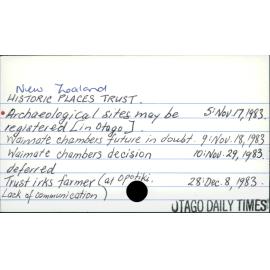 New Zealand
HISTORIC PLACES TRUST.
• Archaeological sites may be 5:Nov.17,1983.
registered [in Otago].
Waimate chambers future in doubt 9:Nov.18,1983
Waimate chambers decision 10:Nov.29,1983.
deferred
Trust irks farmer (at Opotiki. 28:Dec.8,1983.
Lack of communication)
OTAGO DAILY TIMES